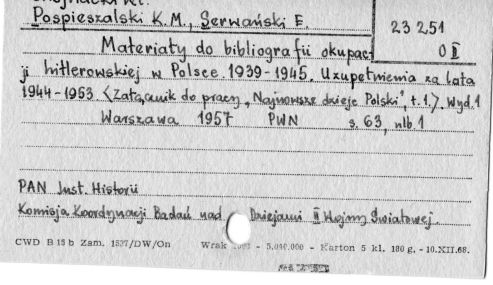 Pospieszalski K.M., Serwański E.
23 251
0 I
Materiały do bibliografii okupac
ji hitlerowskiej w Polsce 1939-1945. Uzupełnienia za lata
1944-1953 〈Załącznik do pracy „Najnowsze dzieje Polski" t.1.〉. Wyd.1
Warszawa 1957 PWN s. 63, nlb.1
PAN Inst. Historii
Komisja Koordynacji Badań nad Dziejami II Wojny Światowej.
CWD B 13 b Zam. 1527/DW/On Wrak - 5,000.000 - Karton 5 kl. 180 g. - 10.XII.68.